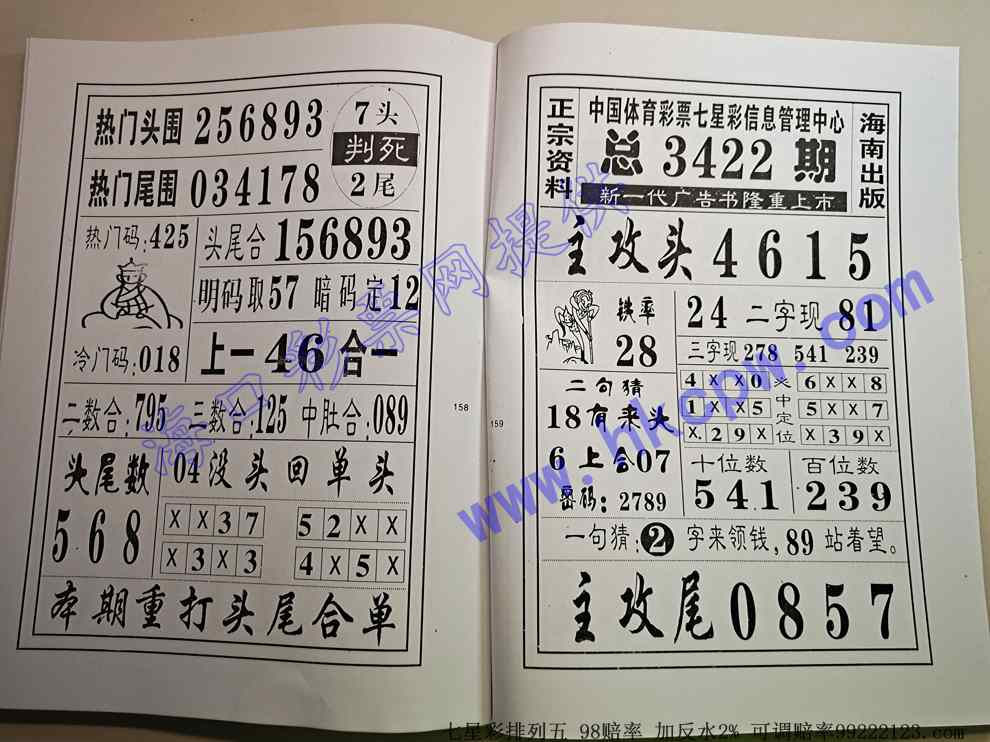 热门头围 256893
7头
判死
2尾
热门尾围 034178
热门码:425
头尾合 156893
明码取57 暗码定12
冷门码:018
上一46合一
二数合:795 三数合:125 中肚合:089
头尾数 04没头回单头
568
X X 3 7
5 2 X X
X 3 X 3
4 X 5 X
本期重打头尾合单
158
正宗资料
中国体育彩票七星彩信息管理中心
总 3422 期
新一代广告书隆重上市
海南出版
主攻头4615
铁率
28
24 二字现 81
三字现 278 541 239
二句猜
18有来头
6上合07
密码:2789
4 X X 0
6 X X 8
1 X X 5
5 X X 7
X 2 9 X
X 3 9 X
中定位
十位数
541
百位数
239
一句猜:2 字来领钱,89 站着望。
主攻尾0857
159
海口彩票网提供
www.hkcpw.com
七星彩排列五 98赔率 加反水2% 可调赔率99222123.com